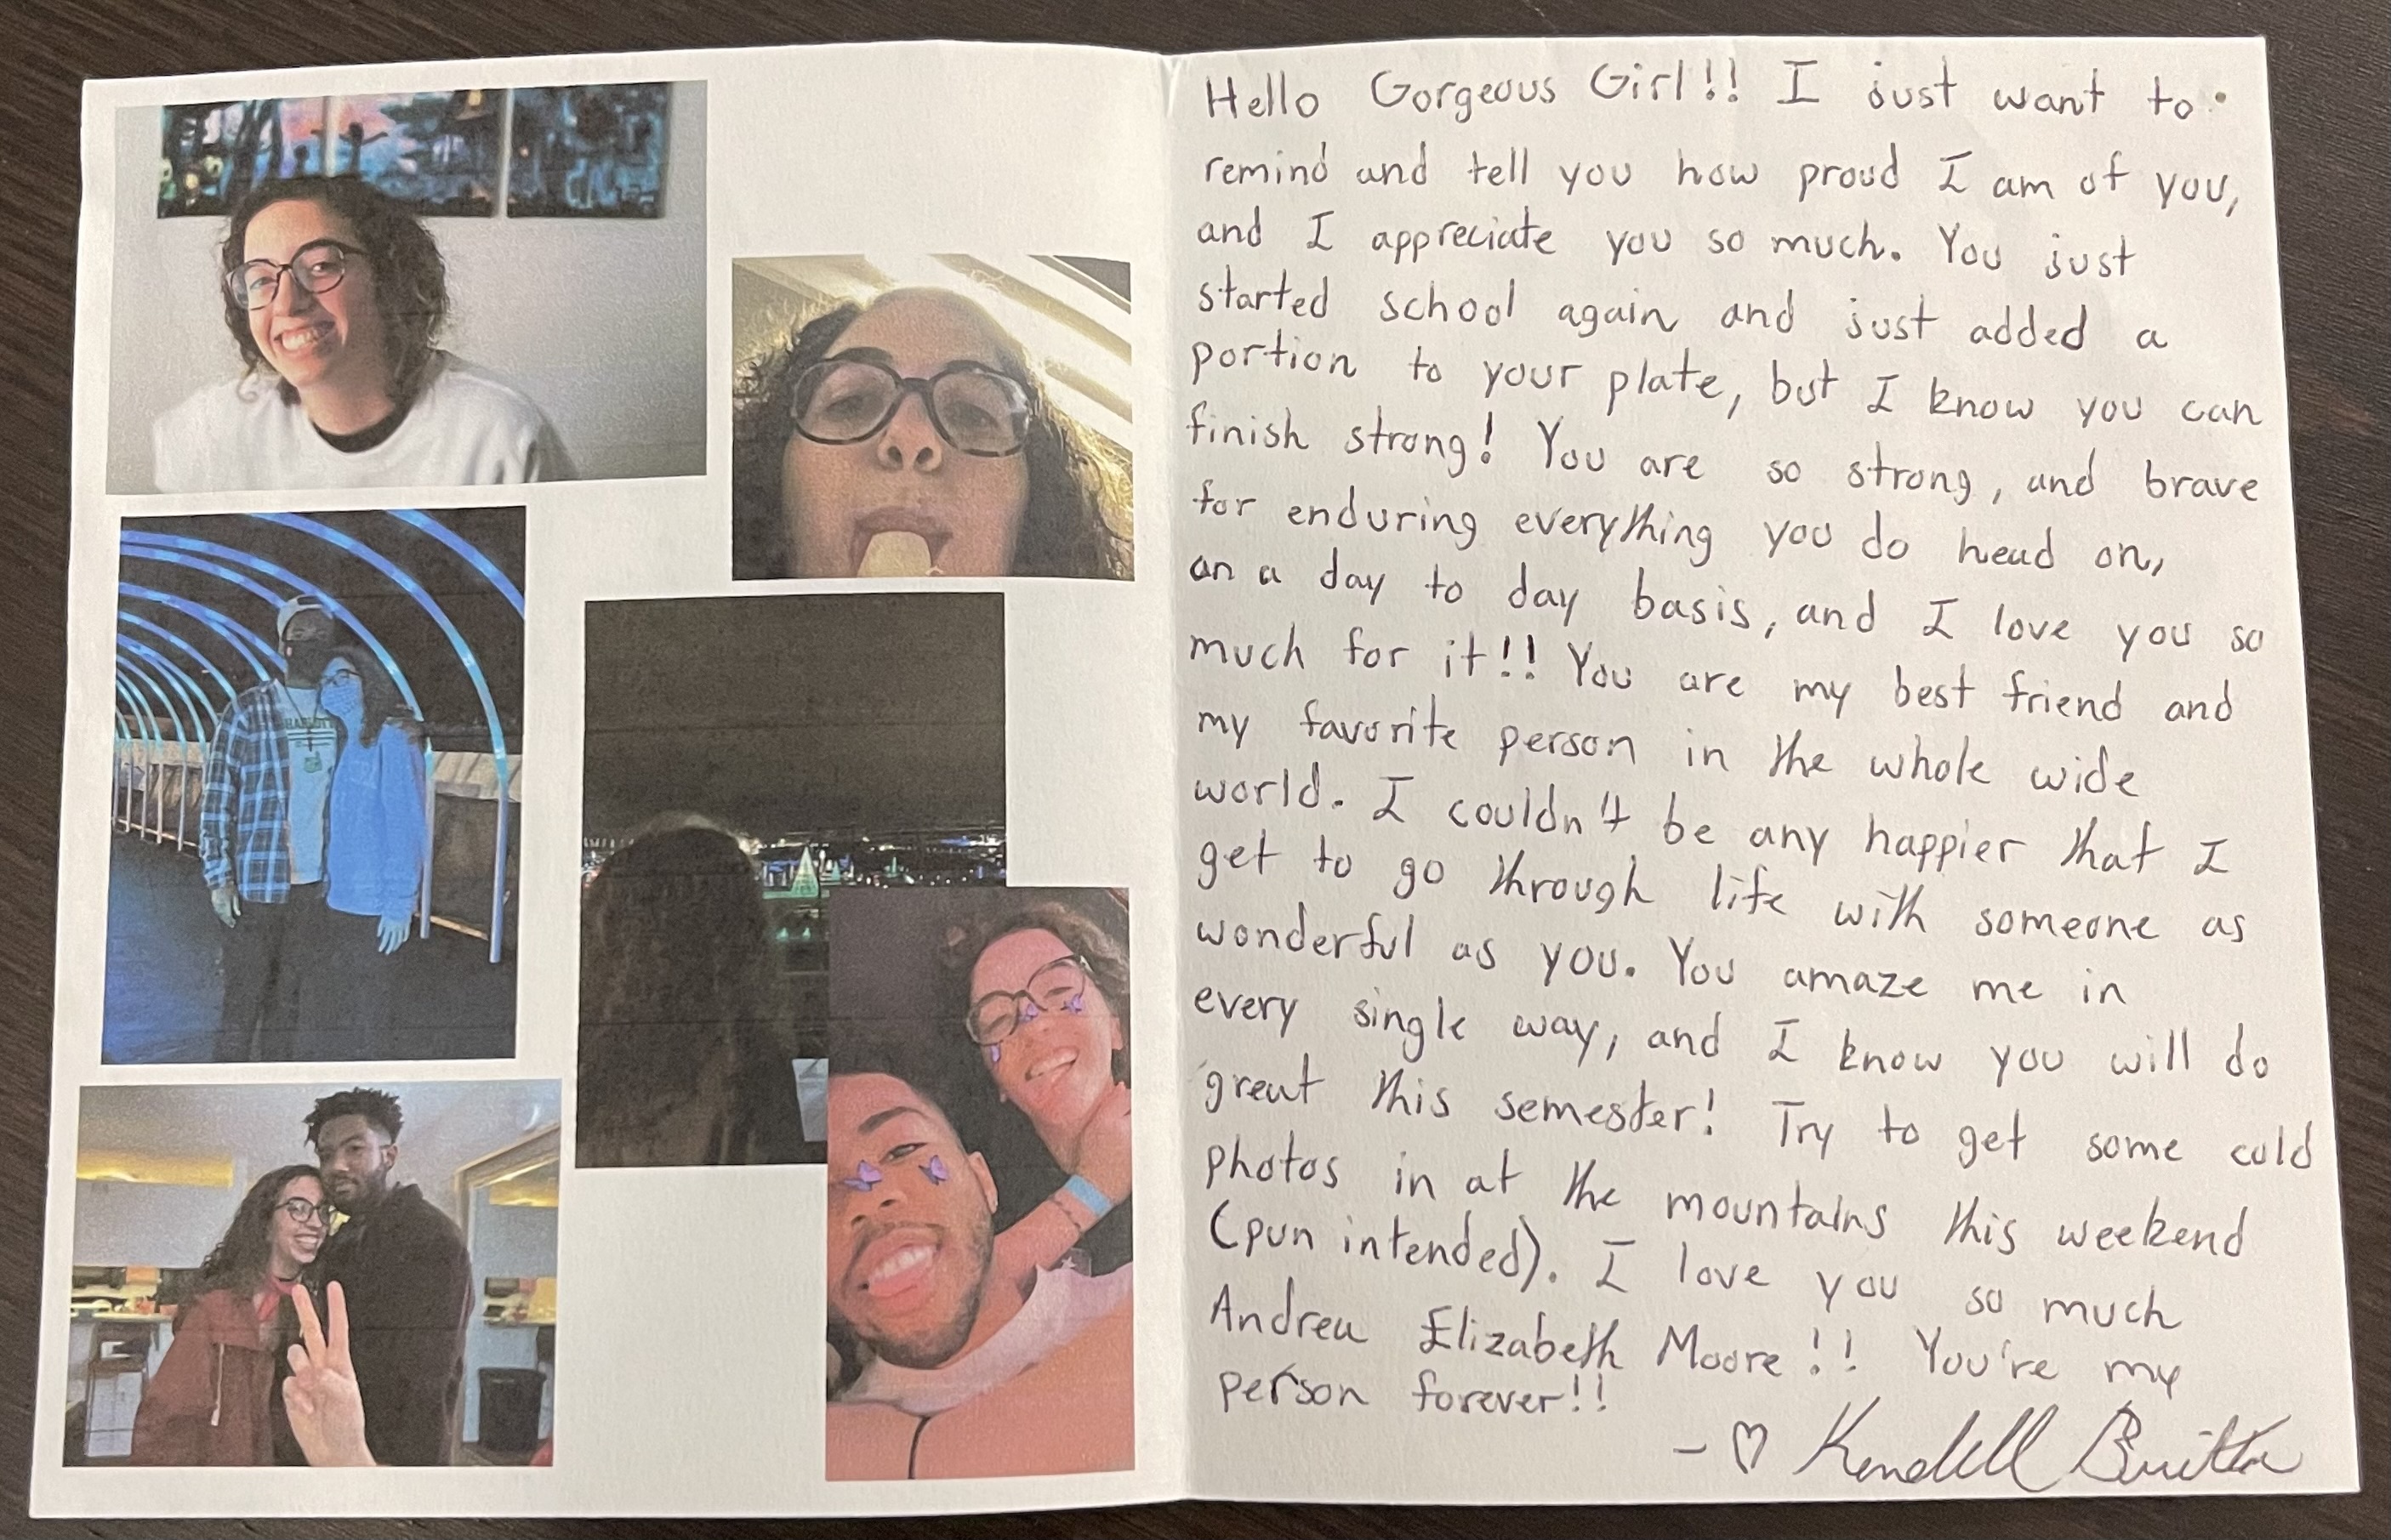 Hello Gorgeous Girl!! I just want to
remind and tell you how proud I am of you,
and I appreciate you so much. You just
started school again and just added a
portion to your plate, but I know you can
finish strong! You are so strong, and brave
for enduring everything you do head on,
on a day to day basis, and I love you so
much for it!! You are my best friend and
my favorite person in the whole wide
world. I couldn't be any happier that I
get to go through life with someone as
wonderful as you. You amaze me in
every single way, and I know you will do
great this semester! Try to get some cold
photos in at the mountains this weekend
(pun intended). I love you so much
Andrea Elizabeth Moore!! You're my
person forever!!
- ♡ Kendell